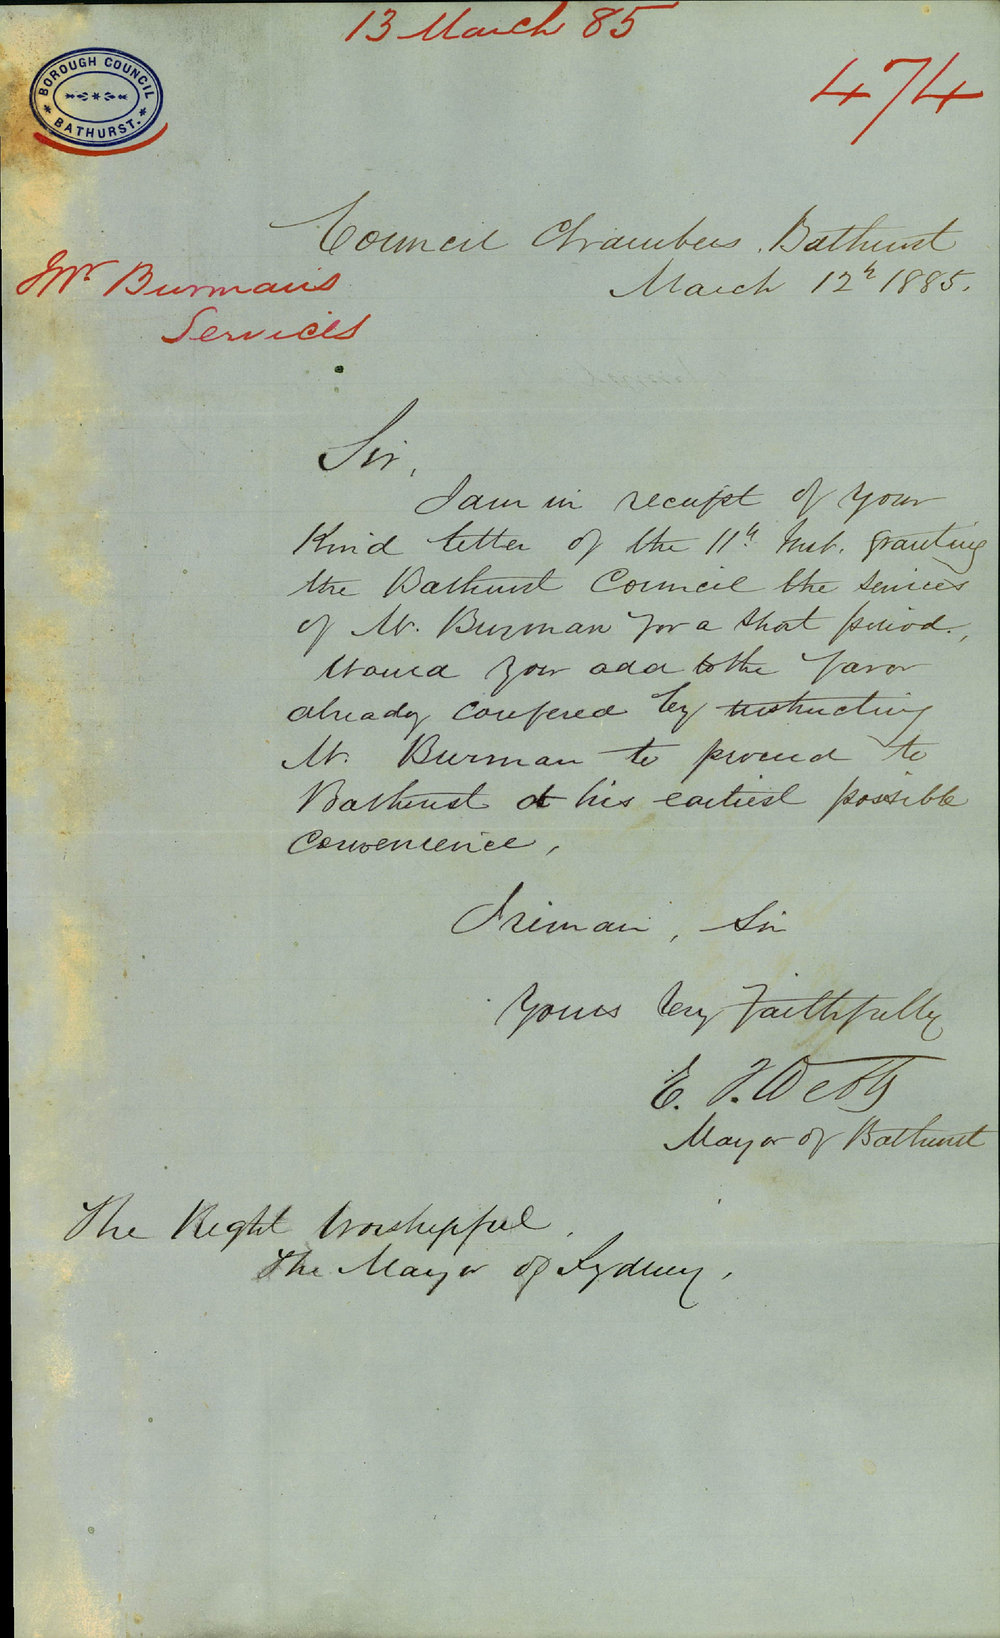 13 March 85
474
BOROUGH COUNCIL
BATHURST.
Council Chambers. Bathurst
March 12th 1885.
Mr Burman's
Services
Sir,
I am in receipt of your
Kind letter of the 11th Inst. granting
the Bathurst Council the services
of Mr. Burman for a short period.,
Would you add to the favor
already confered by instructing
Mr. Burman to proceed to
Bathurst at his earliest possible
convenience,
I remain, Sir
Yours very faithfully
E. T. Webb
Mayor of Bathurst
The Right Worshipful
The Mayor of Sydney,